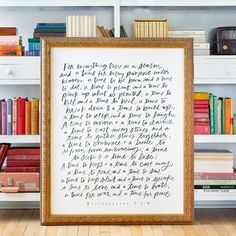 For everything there is a season,
and a time for every purpose under
heaven: a time to be born, and a time
to die; a time to plant, and a time to
pluck up what is planted; a time to
kill, and a time to heal; a time to
break down, a time to build up;
a time to weep, and a time to laugh;
a time to mourn, and a time to dance;
a time to cast away stones, and a
time to gather stones together;
a time to embrace, a time to
refrain from embracing; a time
to seek, a time to lose;
a time to keep, and a time to cast away;
a time to rend, and a time to sew;
a time to keep silent, and a time to speak;
a time to love, and a time to hate;
a time for war, and a time for peace.
Ecclesiastes 3:1-8